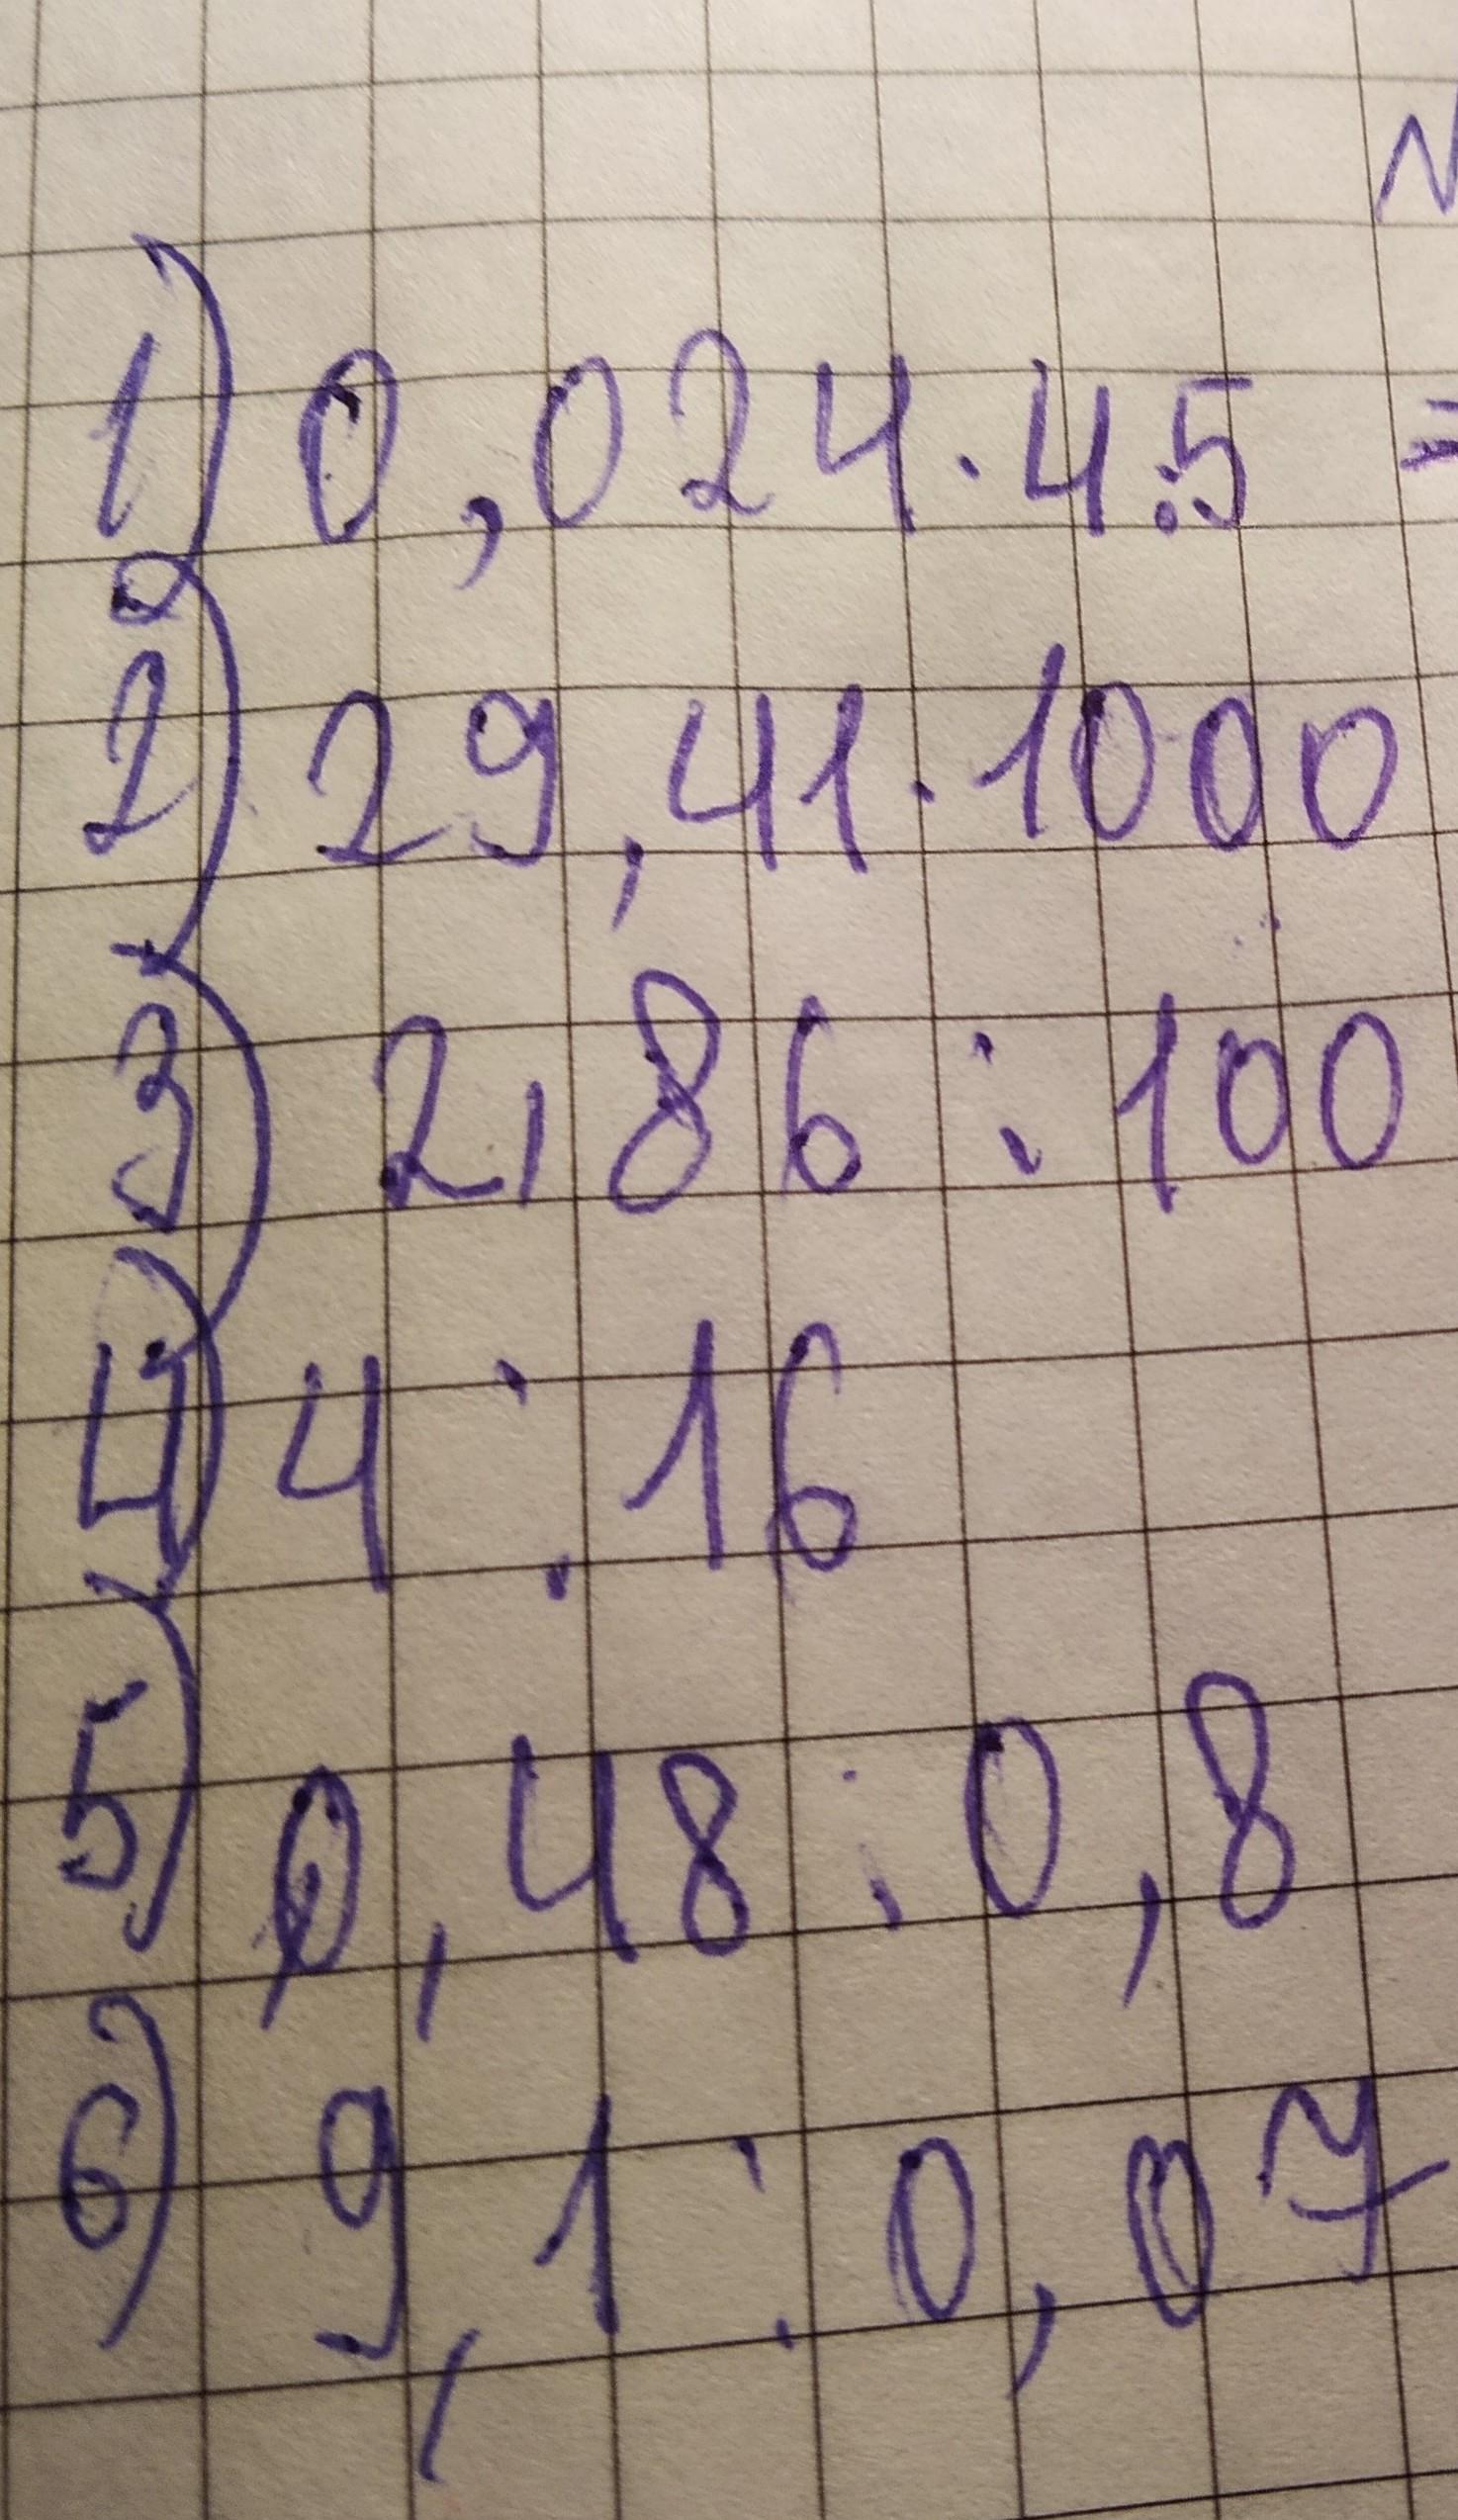 1) 0,024 · 4,5 =
2) 29,41 · 1000
3) 2,86 : 100
4) 4 : 16
5) 0,48 : 0,8
6) 9,1 : 0,07